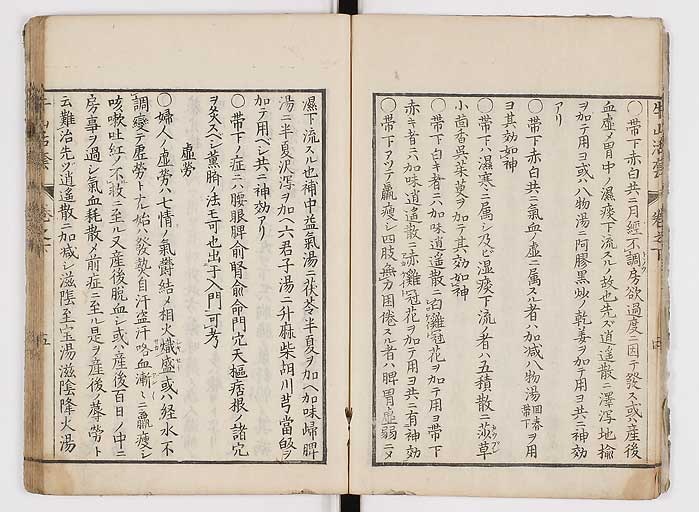 ○帯下赤白共ニ月經不調房欲過度ニ因テ發ス或ハ産後
血虚メ胃中ノ濕痰下流スルノ故也先ズ逍遥散ニ澤泻地揄
ヲ加テ用ヨ或ハ八物湯ニ阿膠黒炒ノ乾姜ヲ加テ用ヨ共ニ神効
アリ
○帯下赤白共ニ氣血ノ虚ニ属スル者ハ加减八物湯回春帯下ヲ用
ヨ其効如神
○帯下ハ濕寒ニ属シ及ビ湿痰下流ノ者ハ五積散ニ莎草
小茴香呉茱萸ヲ加テ其効如神
○帯下白キ者ニハ加味逍遥散ニ白雞冠花ヲ加テ用ヨ帯下
赤キ者ニハ加味逍遥散ニ赤雞冠花ヲ加テ用ヨ共ニ有神効
○帯下アツテ羸瘦シ四肢無力困倦スル者ハ脾胃虚弱ニメ
濕下流スル也補中益氣湯ニ茯苓半夏ヲ加ヘ加味歸脾
湯ニ半夏沢泻ヲ加ヘ六君子湯ニ升麻柴胡川芎當皈ヲ
加テ用ベシ共ニ神効アリ
○帯下ノ症ニハ腰眼脾俞腎俞命門穴天樞痞根ノ諸穴
ヲ灸スベシ薫臍ノ法モ可也出于入門可考
虚勞
○婦人ノ虚勞ハ七情ノ氣鬱結メ相火熾盛或ハ経水不
調變テ虚勞トナル始ハ發熱自汗盗汗咯血漸〻ニ羸瘦シ
咳嗽吐紅ノ不救ニ至ル又産後脱血シ或ハ産後百日ノ中ニ
房事ヲ過シ氣血耗散メ前症ニ至ル是ヲ産後ノ蓐勞ト
云難治先ツ逍遥散ニ加减シ滋陰至宝湯滋陰降火湯
牛山活套
卷之下
五